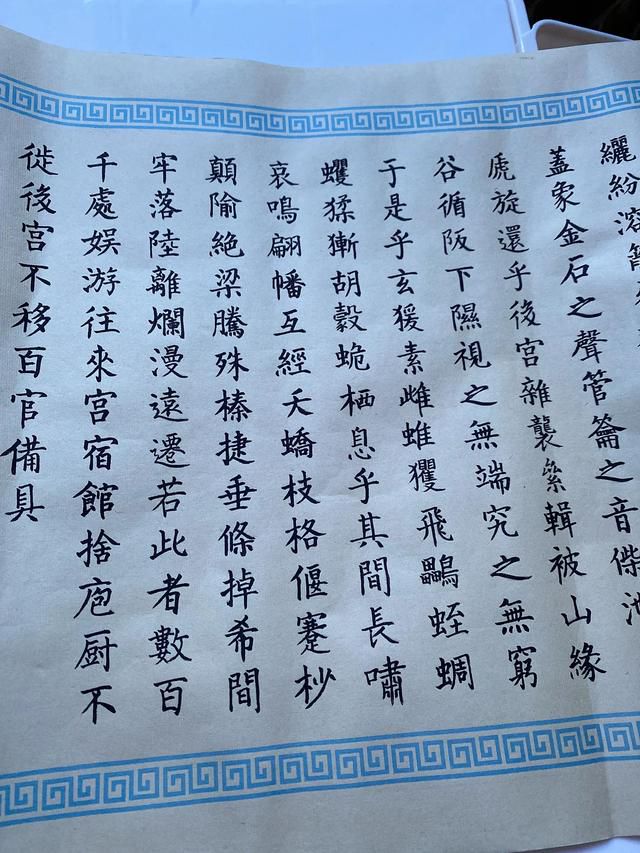 纚紛溶箭
蓋象金石之聲管籥之音傑池
虒旋還乎後宮雜襲絫輯被山緣
谷循阪下隰視之無端究之無窮
于是乎玄猨素雌蜼玃飛鸓蛭蜩
蠼猱獑胡豰蛫栖息乎其間長嘯
哀鳴翩幡互經夭蟜枝格偃蹇杪
顛隃絕梁騰殊榛捷垂條掉希間
牢落陸離爛漫遠遷若此者數百
千處娛游往來宮宿館捨庖厨不
徙後宮不移百官備具